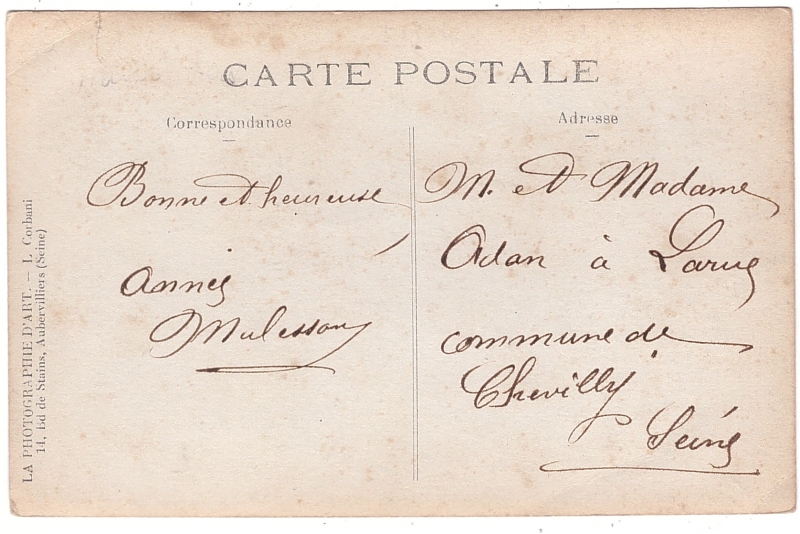 CARTE POSTALE
Correspondance
Bonne et heureuse
année
Adresse
M. et Madame
Adan à Larue
commune de
Chevilly
Seine
LA PHOTOGRAPHIE D'ART. — L. Corbani
14, Bd de Stains, Aubervilliers (Seine)